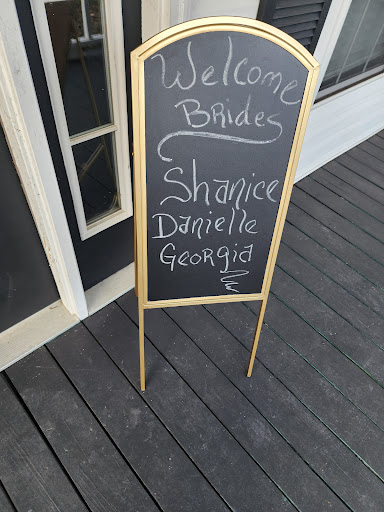 Welcome
BRides
Shanice
Danielle
Georgia